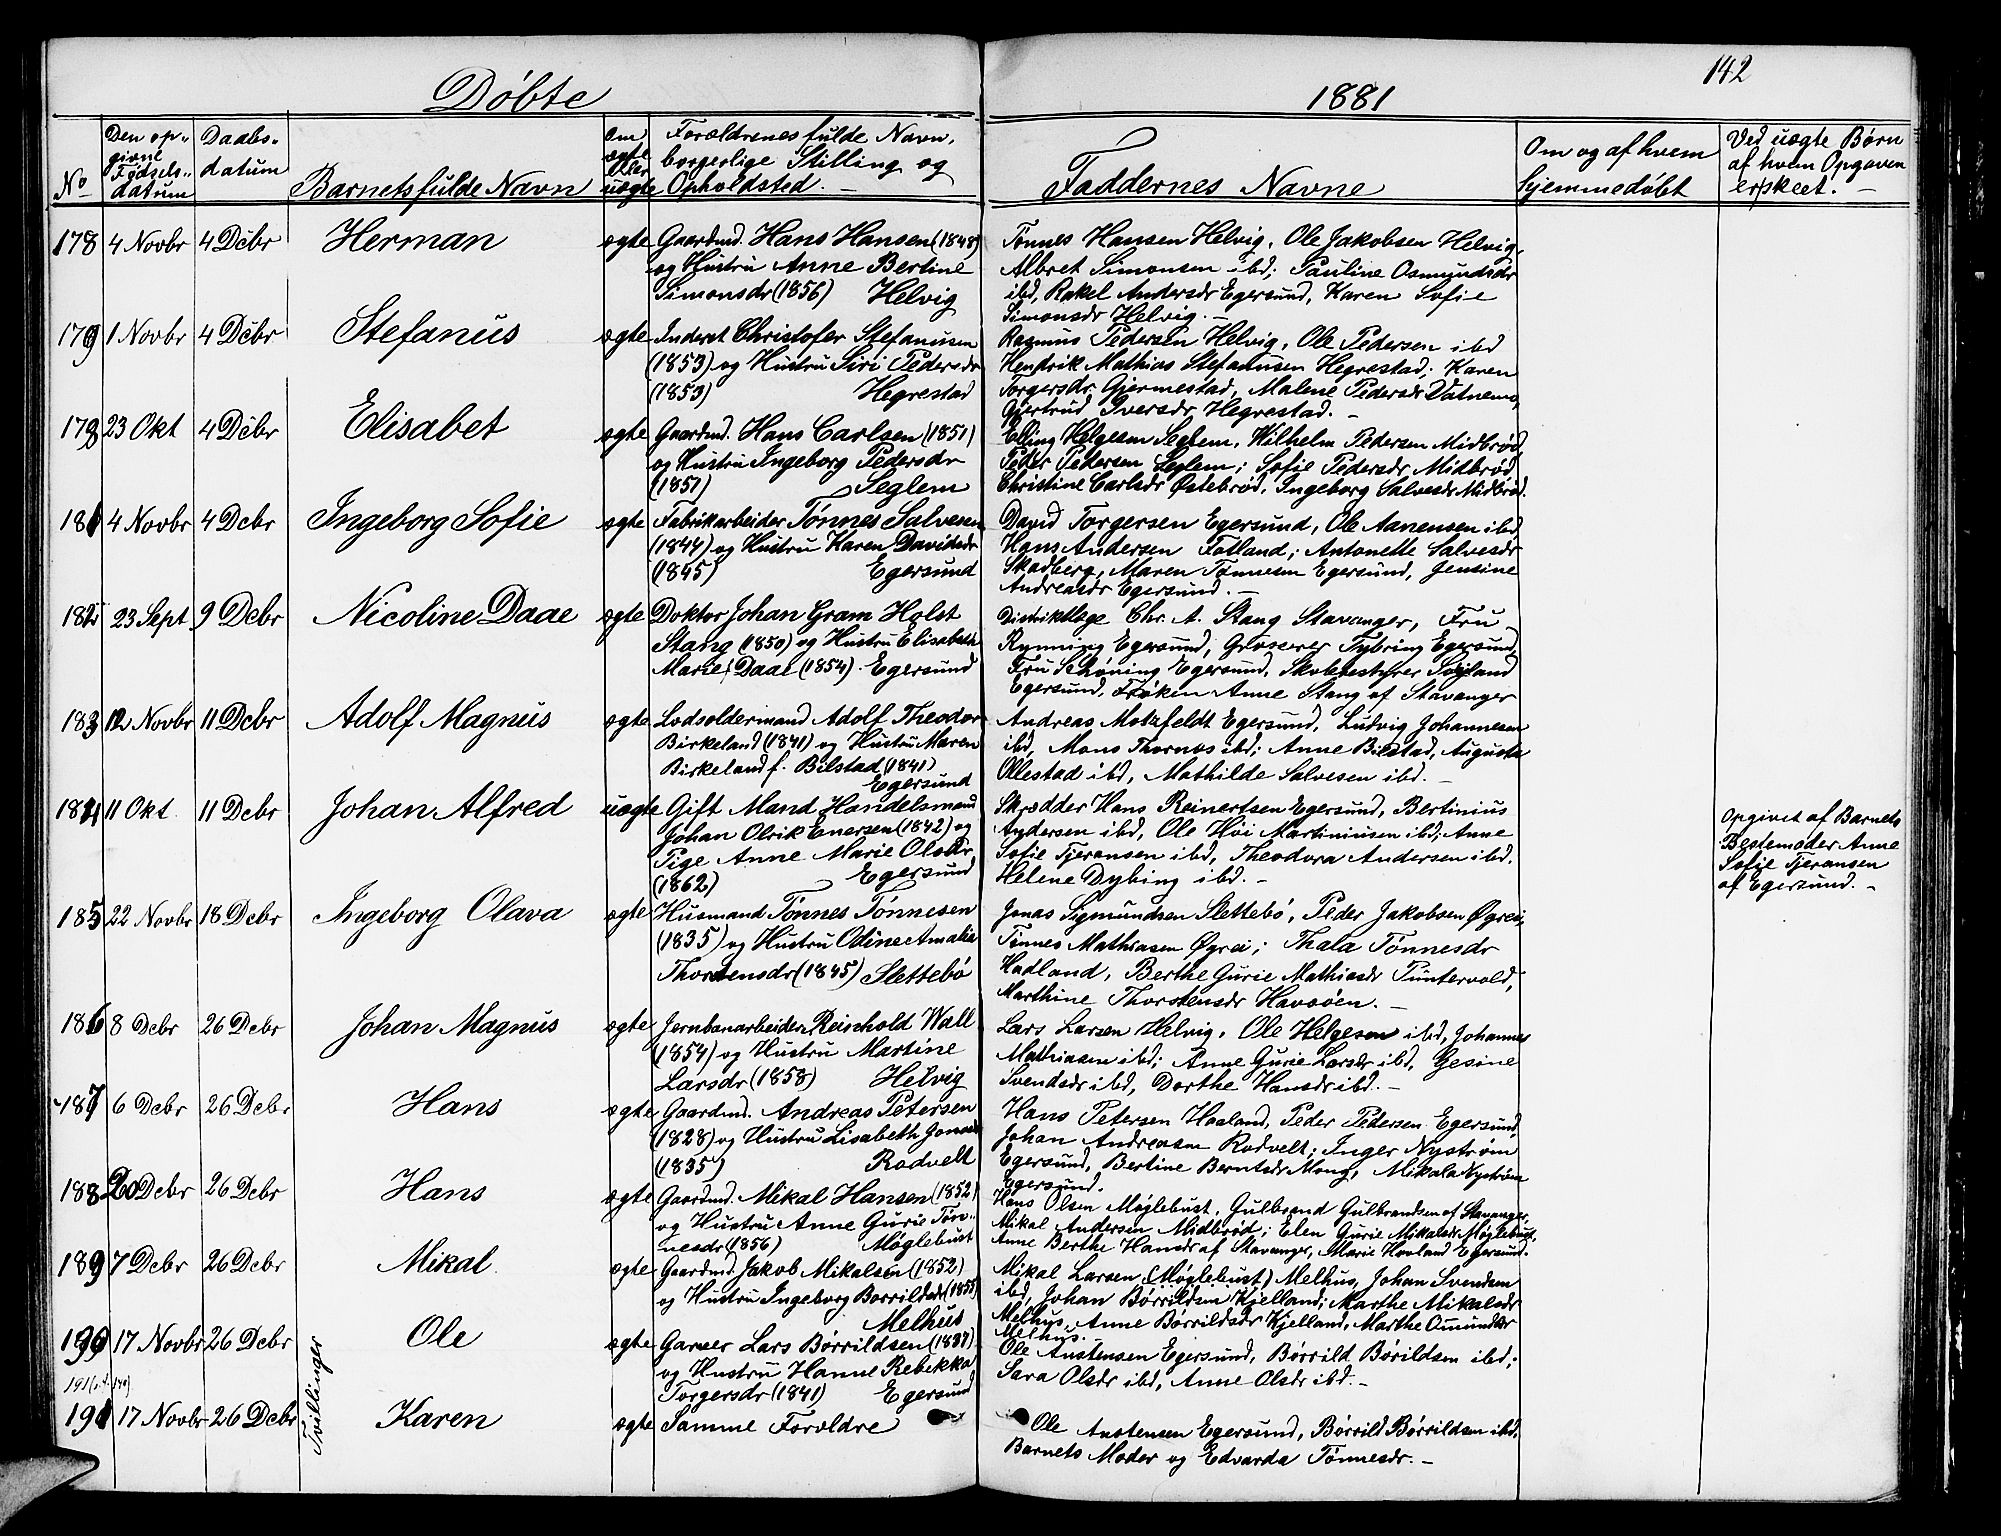 142
Døbte
1881
No
Den op-
givne
Fødsels-
datum
Daabs-
datum
Barnets fulde Navn
Om
ægte
Eller
uægte
Forældrenes fulde Navn,
borgerlige Stilling og
Opholdsted. —
Faddernes Navne
Om og af hvem
hjemmedøbt
Ved uægte Børn
af hvem Opgaven
er skeet. —
178 4 Novbr 4 Dcbr Herman ægte Gaardmd. Hans Hansen (1848)
og Hustru Anne Bertine
Simonsdr (1856) Helvig
Tønnes Hansen Helvig, Ole Jakobsen Helvig,
Albret Simonsen ibd; Pauline Osmundsdr
ibd, Rakel Andersdr Egersund, Karen Sofie
Simonsdr Helvig. —
179 1 Novbr 4 Dcbr Stefanus ægte Inderst Christofer Stefanusen
(1853) og Hustru Siri Pedersdr
(1853) Hegrestad
Rasmus Pedersen Helvig, Ole Pedersen ibd
Hendrik Mathias Stefanusen Hegrestad; Karen
Torgersdr Gjermestad, Malene Pedersdr Vatnemo,
Gjertrud Iversdr Hegrestad. —
23 Okt 4 Dcbr Elisabet ægte Gaardmd. Hans Carlsen (1851)
og Hustru Ingeborg Pedersdr
(1851) Seglem
Elling Helgesen Seglem, Wilhelm Pedersen Midbrød,
Peder Pedersen Seglem; Sofie Pedersdr Midbrød
Christine Carlsdr Østebrød, Ingeborg Salvesdr Midbrød.
181 4 Novbr 4 Dcbr Ingeborg Sofie ægte Fabrikarbeider Tønnes Salvesen
(1844) og Hustru Karen Davidsdr
(1845) Egersund
David Torgersen Egersund, Ole Aanensen ibd
Hans Andersen Fotland; Antonette Salvesdr
Skadberg, Maren Tønnesen Egersund, Jensine
Andreasdr Egersund. —
182 23 Sept 9 Dcbr Nicoline Daae ægte Doktor Johan Gram Holst
Stang (1850) og Hustru Elisabeth
Marie Daae (1854) Egersund
Distriktlæge Chr. A. Stang Stavanger, Fru
Rynning Egersund, Grosserer Tybring Egersund,
Fru Schøning Egersund, Skolebestyrer Søyland
Egersund, Frøken Anne Stang af Stavanger
183 12 Novbr 11 Dcbr Adolf Magnus ægte Lodsoldermand Adolf Theodor
Birkeland (1841) og Hustru Maren
Birkeland f. Bilstad (1841)
Egersund
Andreas Motzfeldt Egersund, Ludvig Johannesen
ibd, Mons Thornæs ibd; Anne Bilstad, Augusta
Ollestad ibd, Mathilde Salvesen ibd. —
184 11 Okt 11 Dcbr Johan Alfred uægte Gift Mand Handelsmand
Johan Olrik Enersen (1842) og
Pige Anne Marie Olsdr
(1862) Egersund
Skrædder Hans Reinertsen Egersund, Bertinius
Andersen ibd, Ole Høi Martiniusen ibd; Anne
Sofie Tjeransen ibd, Theodora Andersen ibd,
Helene Dybing ibd. —
Opgivet af Barnets
Bestemoder Anne
Sofie Tjeransen
af Egersund. —
185 22 Novbr 18 Dcbr Ingeborg Olava ægte Husmand Tønnes Tønnesen
(1835) og Hustru Odine Amalia
Thorstensdr (1845) Slettebø
Jonas Sigmundsen Slettebø, Peder Jakobsen Øgrei,
Tønnes Mathiasen Øgrei; Thala Tønnesdr
Hadland, Berthe Gurie Mathiasdr Puntervold,
Marthine Thorstensdr Havsøen. —
186 8 Dcbr 26 Dcbr Johan Magnus ægte Jernbanarbeider Reinhold Wall
(1854) og Hustru Martine
Larsdr (1858) Helvig
Lars Larsen Helvig, Ole Helgesen ibd, Johannes
Mathiasen ibd; Anne Gurie Larsdr ibd, Gesine
Svendsdr ibd, Dorthe Hansdr ibd. —
187 6 Dcbr 26 Dcbr Hans ægte Gaardmd. Andreas Petersen
(1828) og Hustru Lisabeth Jonasdr
(1835) Rodvelt
Hans Petersen Haaland, Peder Pedersen Egersund,
Johan Andreasen Rodvelt; Inger Nystrøm
Egersund, Bertine Berntsdr Mong, Mikala Nystrøm
Egersund.
188 20 Dcbr 26 Dcbr Hans ægte Gaardmd. Mikal Hansen (1852)
og Hustru Anne Gurie Tøn-
nesdr (1856) Møglebust
Hans Olsen Møglebust, Gulbrand Gulbrandsen af Stavanger,
Mikal Andersen Midbrød; Elen Gurie Mikalsdr Møglebust,
Anne Berthe Hansdr af Stavanger, Marie Hovland Egersund.
189 7 Dcbr 26 Dcbr Mikal ægte Gaardmd. Jakob Mikalsen (1852)
og Hustru Ingeborg Borrildsdr (1855)
Melhus
Mikal Larsen (Møglebust) Melhus, Johan Svendsen
ibd, Johan Børrildsen Kjelland; Marthe Mikalsdr
Melhus, Anne Børrildsdr Kjelland, Marthe Omundsdr
Melhus. —
190 17 Novbr 26 Dcbr Ole ægte Garver Lars Børrildsen (1837)
og Hustru Hanne Rebekka
Torgersdr (1841) Egersund
Ole Austensen Egersund, Børrild Børildsen ibd;
Sara Olsdr ibd, Anne Olsdr ibd. —
Tvillinger
191 17 Novbr 26 Dcbr Karen ægte Samme Forældre
Ole Austensen Egersund, Børrild Børrildsen ibd,
Barnets Moder og Edvarda Tønnesdr. —